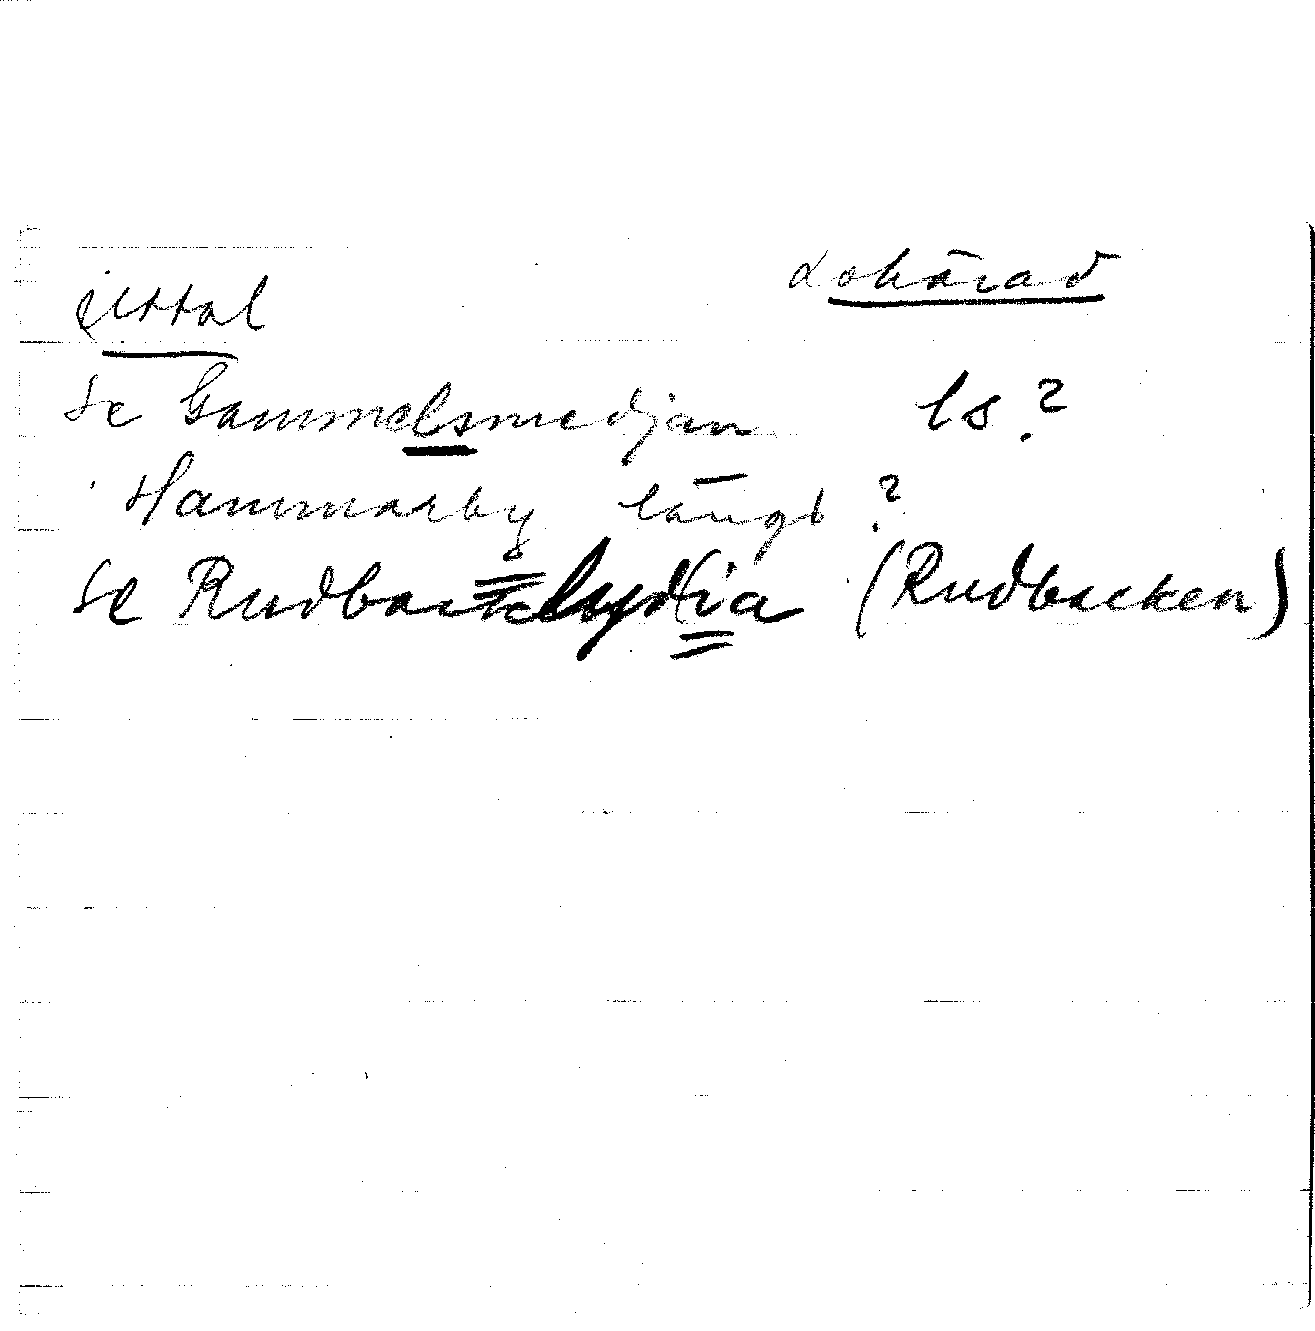 Uttal Lohärad
Se Gammelsmedjan ls?
Hammarby långt?
Se Rudbackslydia (Rudbacken)